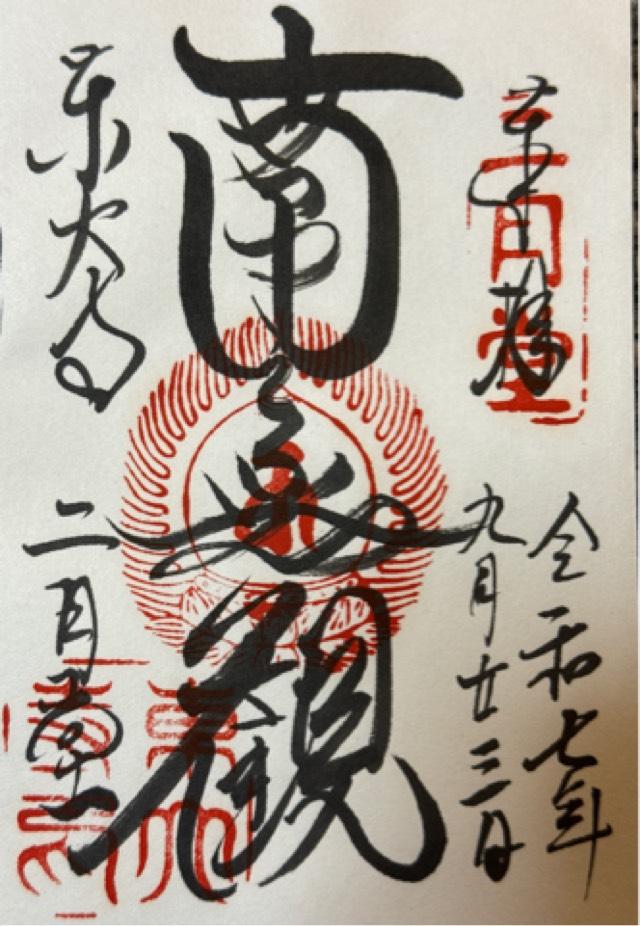 奉拝
二月堂
令和七年
九月廿三日
南無観
東大寺
二月堂